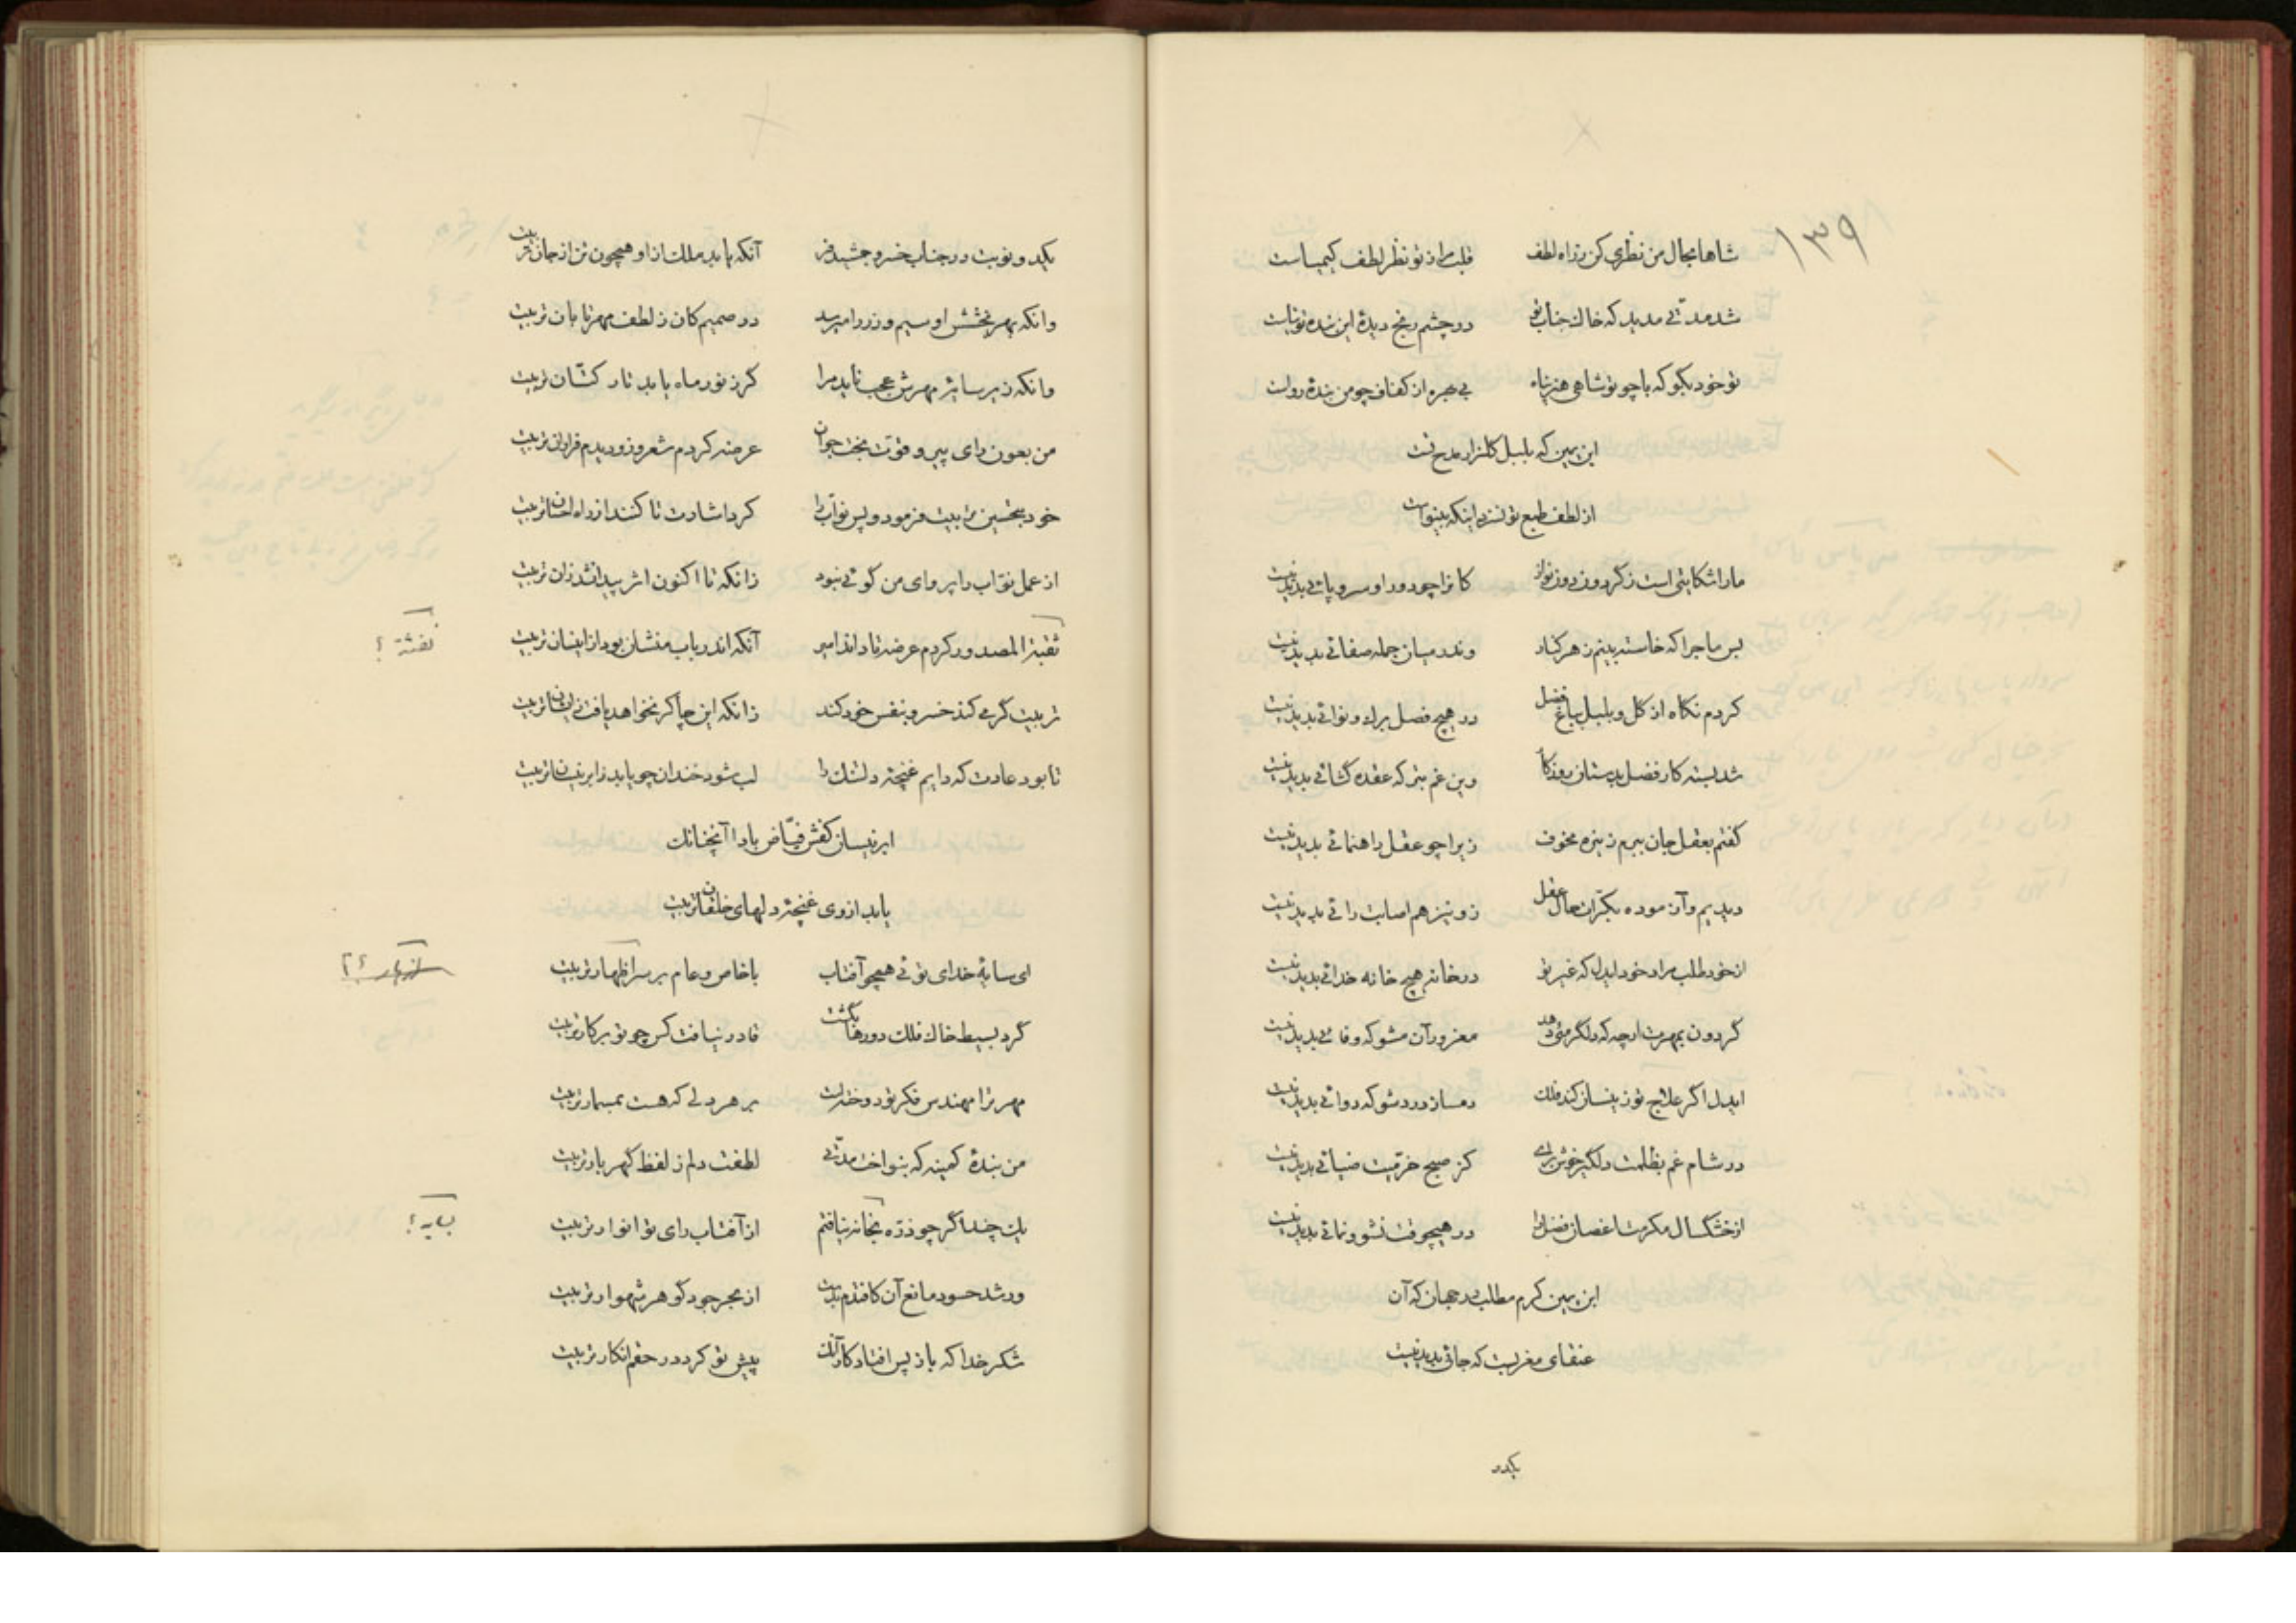 ۱۳۹
شاها بحال من نظری کن ز راه لطف قلب مرا ز تو نظر لطف کیمیاست
شد مدتی مدید که خاک جناب تو در چشم رنج دیدهٔ این بنده توتیاست
تو خود بگو که با چو تو شاهی هنر پناه بی بهره از کفاف چو من بندهٔ رواست
ابن یمین که بلبل گلزار مدح تست
از لطف طبع تو نسزد اینکه بینواست
ما را شکایتی است ز گردون دون نواز کانرا چو دور او سر و پائی پدید نیست
بس ماجرا که خاسته بینم ز هر کنار وندر میان جمله صفائی پدید نیست
کردم نگاه از گل و بلبل بباغ فضل در هیچ فصل برگ و نوائی پدید نیست
شد بسته کار فضل بدستان روزگار وین غم بتر که عقده گشائی پدید نیست
گفتم بعقل جان ببرم زین ره مخوف زیرا چو عقل راهنمائی پدید نیست
دیدیم و آزموده بکرات حال عقل زو نیز هم اصابت رائی پدید نیست
از خود طلب مراد خود ایدل که غیر تو در خانه هیچ خانه خدائی پدید نیست
گردون بمهرت ارچه که دلگرمئی دهد مغرور آن مشو که وفائی پدید نیست
ایدل اگر علاج تو زینسان کند فلک دمساز درد شو که دوائی پدید نیست
در شام غم بظلمت دلگیر خوش برآی کز صبح خرمیت ضیائی پدید نیست
از خشکسال مکرمت اغصان فضل را در هیچوقت نشو و نمائی پدید نیست
ابن یمین کرم مطلب در جهان که آن
عنقای مغربست که جائی پدید نیست
یکدو
یکدو نوبت در جناب خسرو جمشید فر آنکه یابد ملک از او همچون تن از جان تربیت
وانکه بهر بخشش او سیم و زر را میرسد در صمیم کان ز لطف مهر تابان تربیت
وانکه زیر سایهٔ مهرش عجب ناید مرا گر ز نور ماه یابد تار کتّان تربیت
من بعون رای پیر و قوت بخت جوان عرضه کردم شعر و زو دیدم فراوان تربیت
خود بتحسین مرا بیت فرمود و پس نوّاب را کرد اشارت تا کنند از راه احسان تربیت
از عمل نوّاب را پروای من گوئی نبود زانکه تا اکنون اثر پیدا نشد زان تربیت
نفثة المصدور کردم عرضه تا داند امیر آنکه اندر باب منشان بود از اینسان تربیت
نفثة ؟
تربیت گر می کند خسرو بنفس خود کند زانکه این چاکر نخواهد یافت ز ایشان تربیت
تا بود عادت که دایم غنچهٔ دلتنگ را لب شود خندان چو یابد ز ابر نیسان تربیت
ابر نیسان کفش فیّاض بادا آنچنانک
یابد از وی غنچهٔ دلهای خلقان تربیت
ای سایهٔ خدای توئی همچو آفتاب با خاص و عام بر سر اظهار تربیت
گرد بسیط خاک فلک دورها بگشت قادر نیافت کس چو تو بر کار تربیت
مهر ترا مهندس فکر تو دوختست بر هر دلی که هست بمسمار تربیت
من بندهٔ کمینه که بنواخت مدتی لطفت دلم ز لفظ گهر بار تربیت
یک چند اگر چو ذره بخانه نیافتم از آفتاب رای تو انوار تربیت
بسایه ؟
ور شد حسود مانع آن کافتدم بدست از بحر جود گوهر شهوار تربیت
شکر خدا که باز پس افتاد کار آنک پیش تو کرد در حقم انکار تربیت